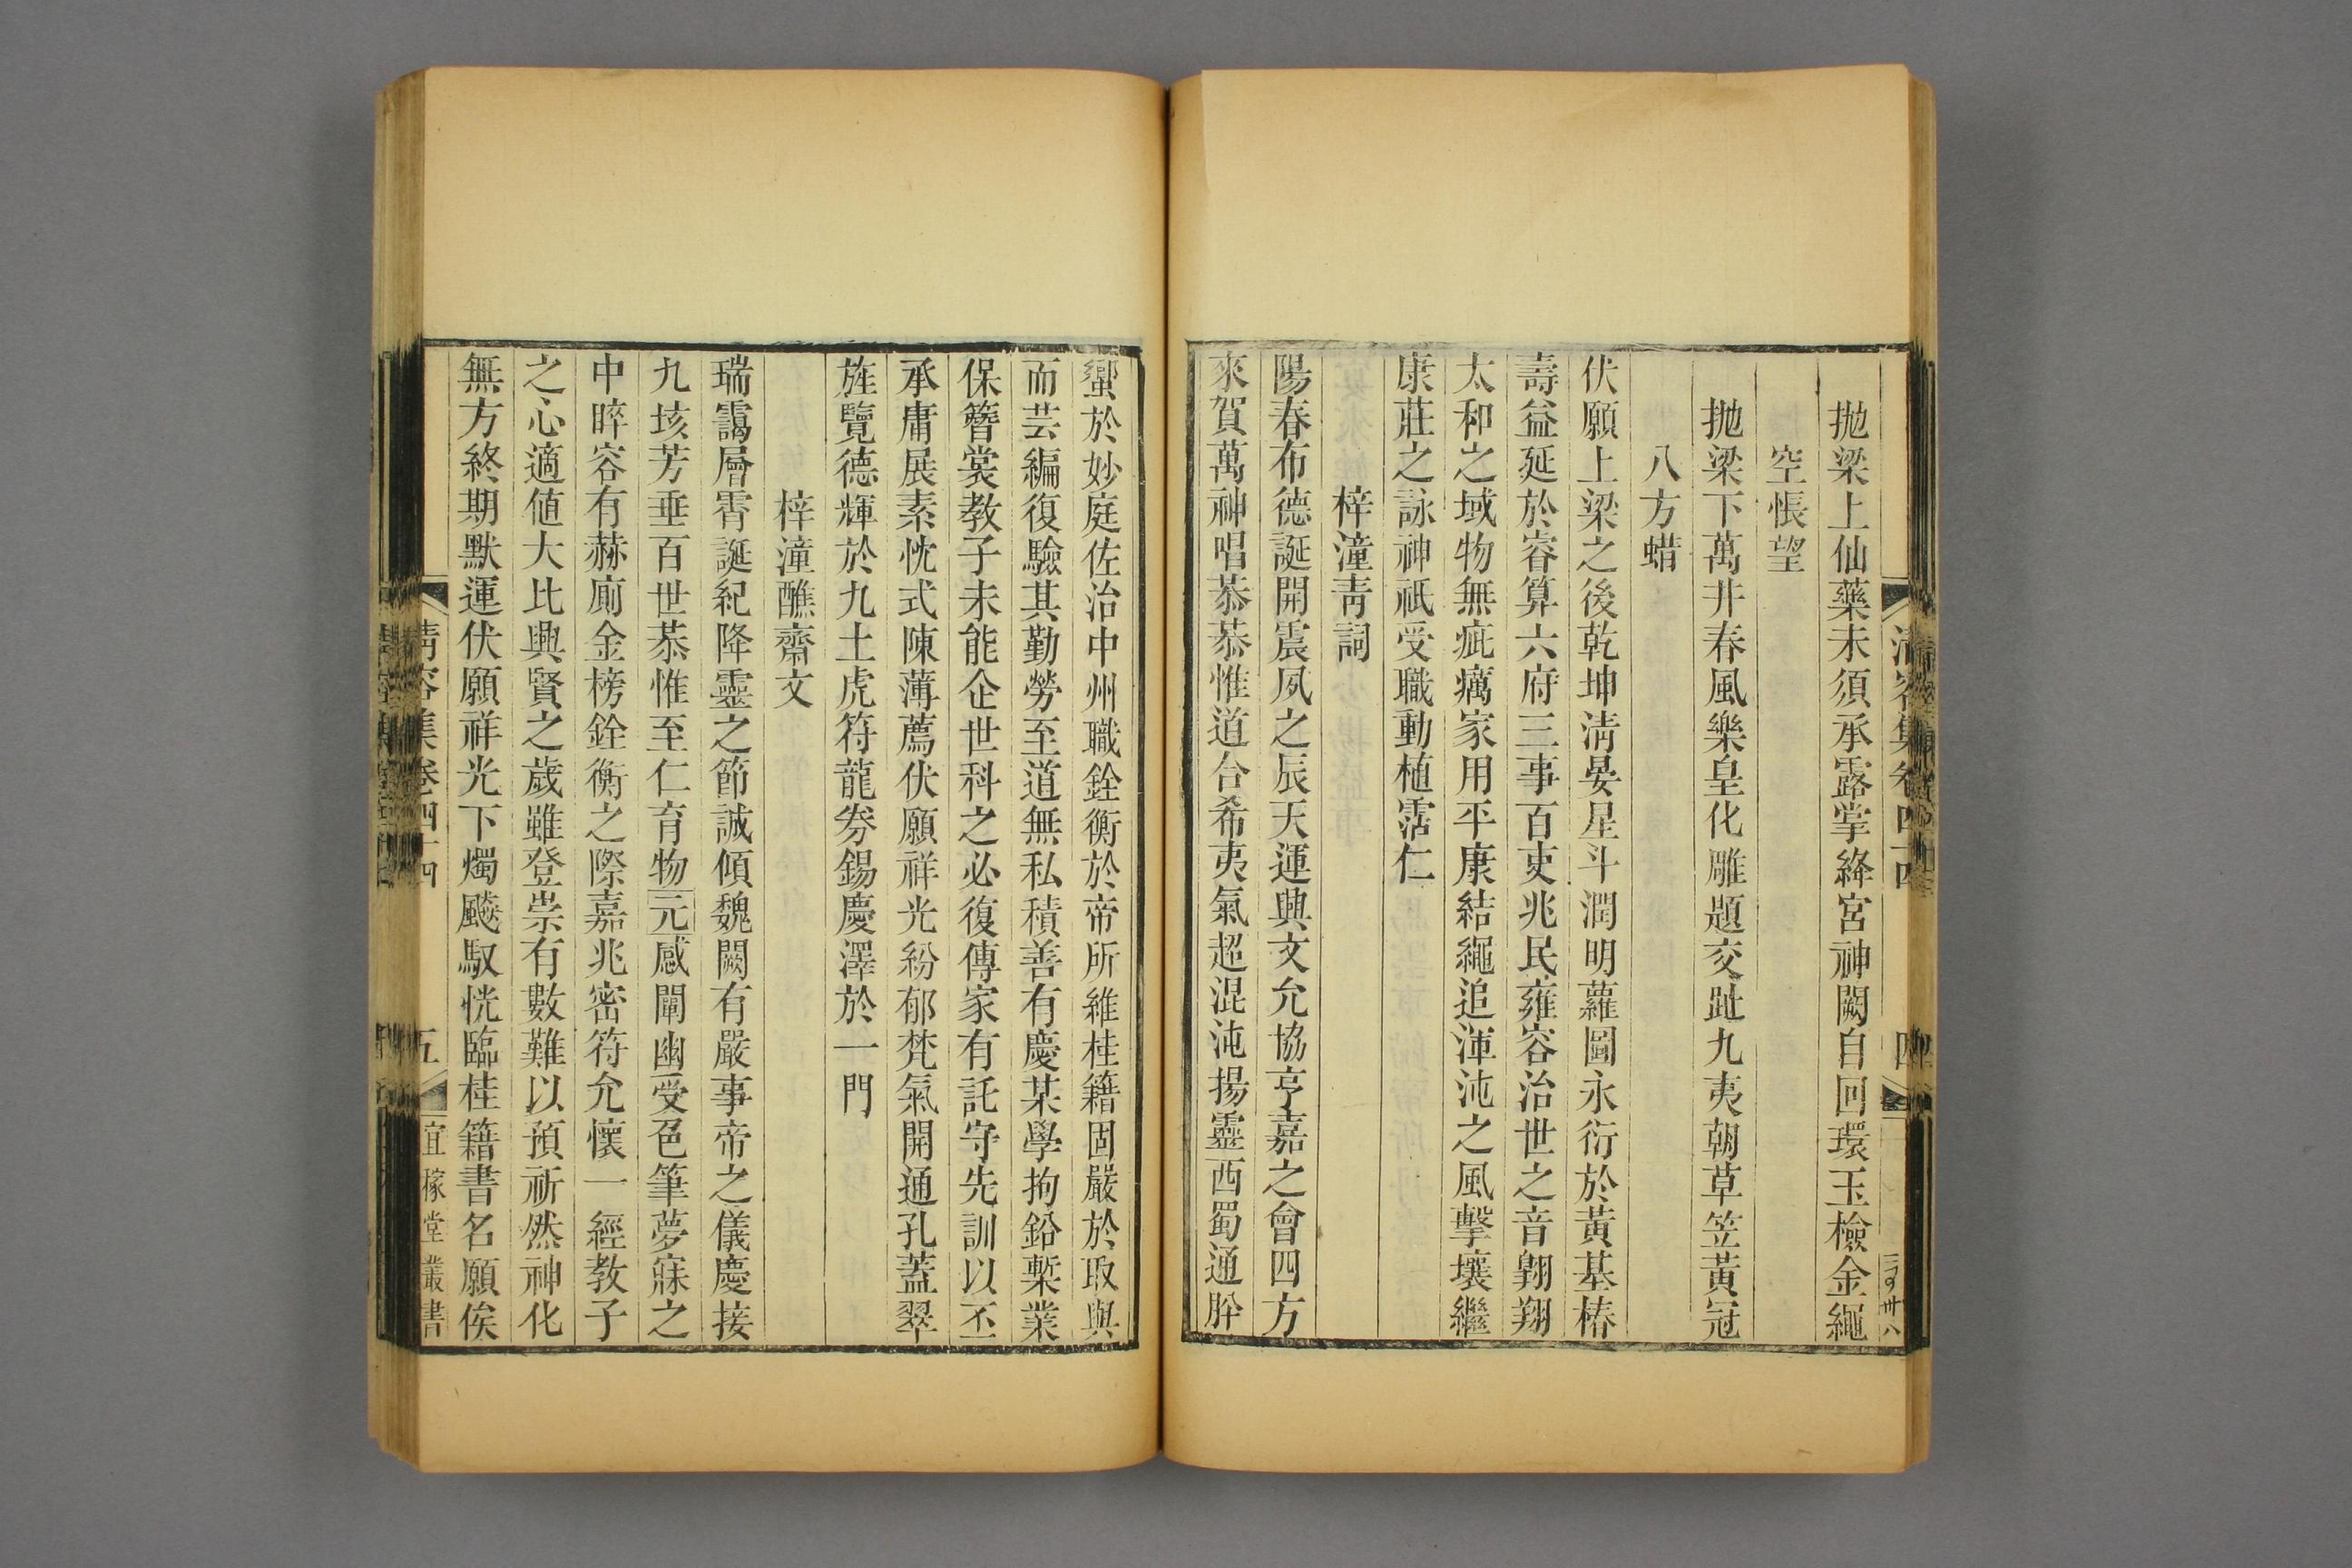 拋梁上仙藥未須承露掌絳宮神闕自回環玉檢金繩
空悵望
拋梁下萬井春風樂皇化雕題交趾九夷朝草笠黃冠
八方蜡
伏願上梁之後乾坤淸晏星斗潤明蘿圖永衍於黃基椿
壽益延於睿算六府三事百吏兆民雍容治世之音翺翔
太和之域物無疵癘家用平康結繩追渾沌之風擊壤繼
康莊之詠神祇受職動植霑仁
梓潼靑詞
陽春布德誕開震夙之辰天運興文允協亨嘉之會四方
來賀萬神唱恭恭惟道合希夷氣超混沌揚靈西蜀通肸
蠁於妙庭佐治中州職銓衡於帝所維桂籍固嚴於取與
而芸編復驗其勤勞至道無私積善有慶某學拘鉛槧業
保簪裳教子未能企世科之必復傳家有託守先訓以丕
承庸展素忱式陳薄薦伏願祥光紛郁梵氣開通孔蓋翠
旌覽德輝於九土虎符龍劵錫慶澤於一門
梓潼醮齋文
瑞靄層霄誕紀降靈之節誠傾魏闕有嚴事帝之儀慶接
九垓芳垂百世恭惟至仁育物元感闡幽受色筆夢寐之
中睟容有赫廁金榜銓衡之際嘉兆密符允懷一經教子
之心適値大比興賢之歲雖登祟有數難以預祈然神化
無方終期默運伏願祥光下燭飈馭恍臨桂籍書名願俟
淸容集卷四十四
五
宜稼堂叢書